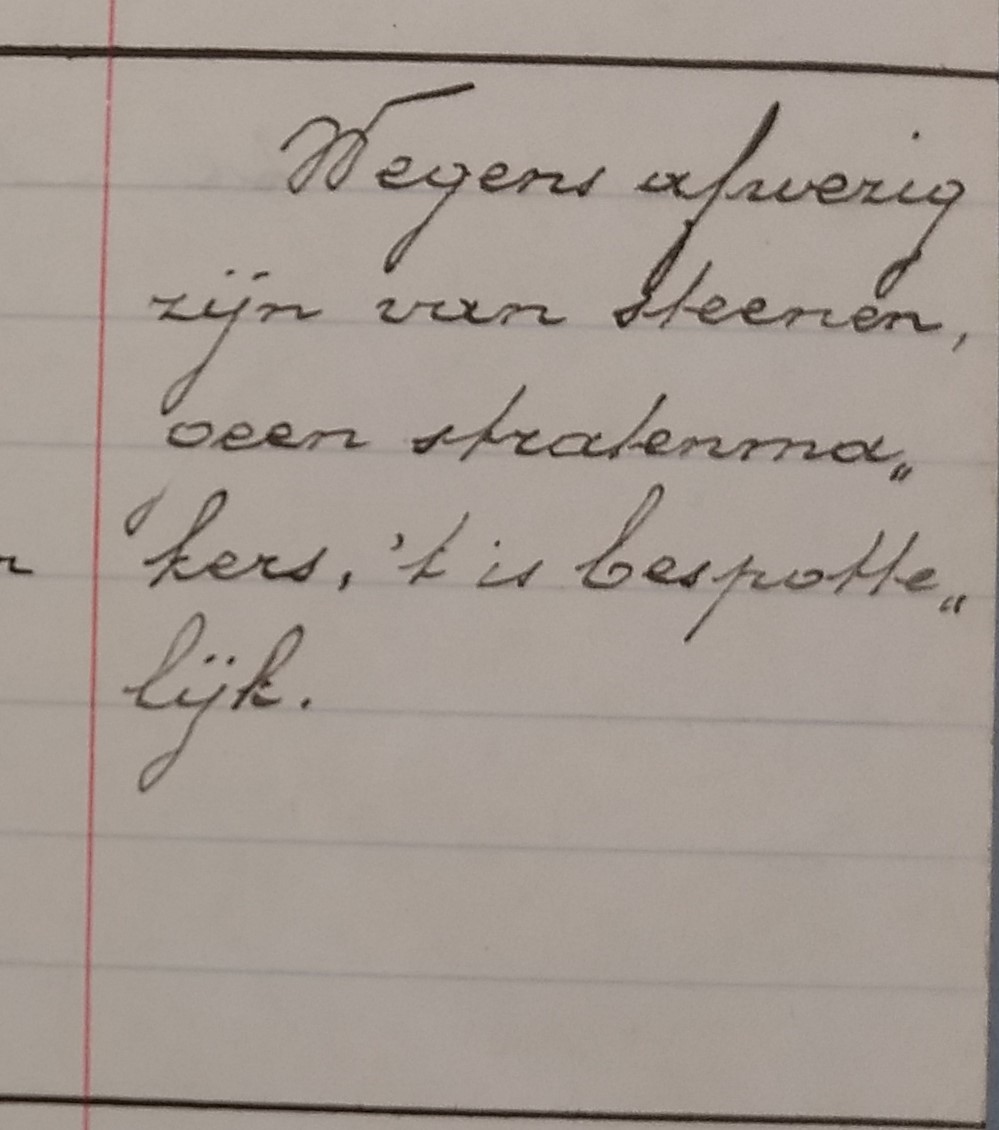 Wegens afwezig
zijn van steenen,
geen stratenma„
kers, 't is bespotte„
lijk.